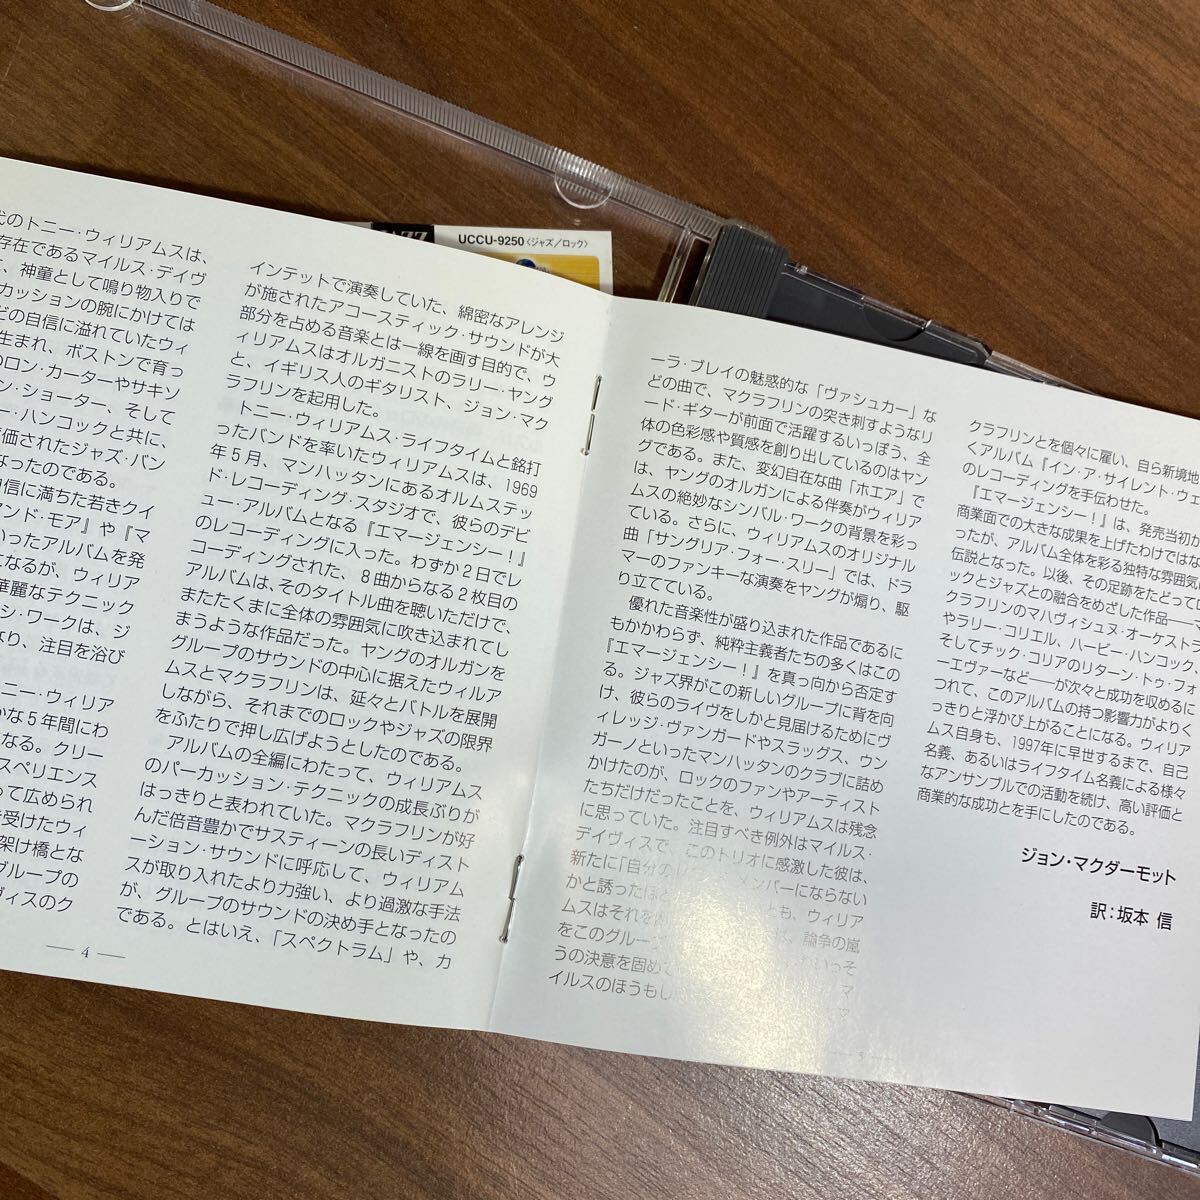 UCCU-9250〈ジャズ/ロック〉
代のトニー・ウィリアムスは、
存在であるマイルス・デイヴ
、神童として鳴り物入りで
カッションの腕にかけては
どの自信に溢れていたウィ
生まれ、ボストンで育っ
のロン・カーターやサキソ
ン・ショーター、そして
ー・ハンコックと共に、
価されたジャズ・バン
なったのである。
自信に満ちた若きクイ
アンド・モア』や『マ
いったアルバムを発
になるが、ウィリア
華麗なテクニック
シ・ワークは、ジ
なり、注目を浴び
ニー・ウィリア
かな5年間にわ
なる。クリー
スペリエンス
って広められ
を受けたウィ
架け橋とな
グループの
ヴィスのク
インテットで演奏していた、綿密なアレンジ
が施されたアコースティック・サウンドが大
部分を占める音楽とは一線を画す目的で、ウ
ィリアムスはオルガニストのラリー・ヤング
と、イギリス人のギタリスト、ジョン・マク
ラフリンを起用した。
トニー・ウィリアムス・ライフタイムと銘打
ったバンドを率いたウィリアムスは、1969
年5月、マンハッタンにあるオルムステッ
ド・レコーディング・スタジオで、彼らのデビ
ュー・アルバムとなる『エマージェンシー！』
のレコーディングに入った。わずか2日でレ
コーディングされた、8曲からなる2枚目の
アルバムは、そのタイトル曲を聴いただけで、
またたくまに全体の雰囲気に吹き込まれてし
まうような作品だった。ヤングのオルガンを
グループのサウンドの中心に据えたウィルア
ムスとマクラフリンは、延々とバトルを展開
しながら、それまでのロックやジャズの限界
をふたりで押し広げようとしたのである。
アルバムの全編にわたって、ウィリアムス
のパーカッション・テクニックの成長ぶりが
はっきりと表われていた。マクラフリンが好
んだ倍音豊かでサスティーンの長いディスト
ーション・サウンドに呼応して、ウィリアム
スが取り入れたより力強い、より過激な手法
が、グループのサウンドの決め手となったの
である。とはいえ、「スペクトラム」や、カ
— 4 —
ーラ・ブレイの魅惑的な「ヴァシュカー」な
どの曲で、マクラフリンの突き刺すようなリ
ード・ギターが前面で活躍するいっぽう、全
体の色彩感や質感を創り出しているのはヤン
グである。また、変幻自在な曲「ホエア」で
は、ヤングのオルガンによる伴奏がウィリア
ムスの絶妙なシンバル・ワークの背景を彩っ
ている。さらに、ウィリアムスのオリジナル
曲「サングリア・フォー・スリー」では、ドラ
マーのファンキーな演奏をヤングが煽り、駆
り立てている。
優れた音楽性が盛り込まれた作品であるに
もかかわらず、純粋主義者たちの多くはこの
『エマージェンシー！』を真っ向から否定す
る。ジャズ界がこの新しいグループに背を向
け、彼らのライヴをしかと見届けるためにヴ
ィレッジ・ヴァンガードやスラッグス、ウン
ガーノといったマンハッタンのクラブに詰め
かけたのが、ロックのファンやアーティスト
たちだけだったことを、ウィリアムスは残念
に思っていた。注目すべき例外はマイルス・
デイヴィスで、このトリオに感激した彼は、
新たに「自分の メンバーにならない
かと誘ったほど とも、ウィリア
ムスはそれを 論争の嵐
をこのグルー いっそ
うの決意を固めて マ
イルスのほうもし ア
クラフリンとを個々に雇い、自ら新境地
くアルバム『イン・ア・サイレント・ウェ
のレコーディングを手伝わせた。
『エマージェンシー！』は、発売当初か
商業面での大きな成果を上げたわけではな
ったが、アルバム全体を彩る独特な雰囲気
伝説となった。以後、その足跡をたどって
ックとジャズとの融合をめざした作品——マ
クラフリンのマハヴィシュヌ・オーケストラ
やラリー・コリエル、ハービー・ハンコック
そしてチック・コリアのリターン・トゥ・フォ
ーエヴァーなど——が次々と成功を収めるに
つれて、このアルバムの持つ影響力がよりく
っきりと浮かび上がることになる。ウィリア
ムス自身も、1997年に早世するまで、自己
名義、あるいはライフタイム名義による様々
なアンサンブルでの活動を続け、高い評価と
商業的な成功とを手にしたのである。
ジョン・マクダーモット
訳：坂本 信